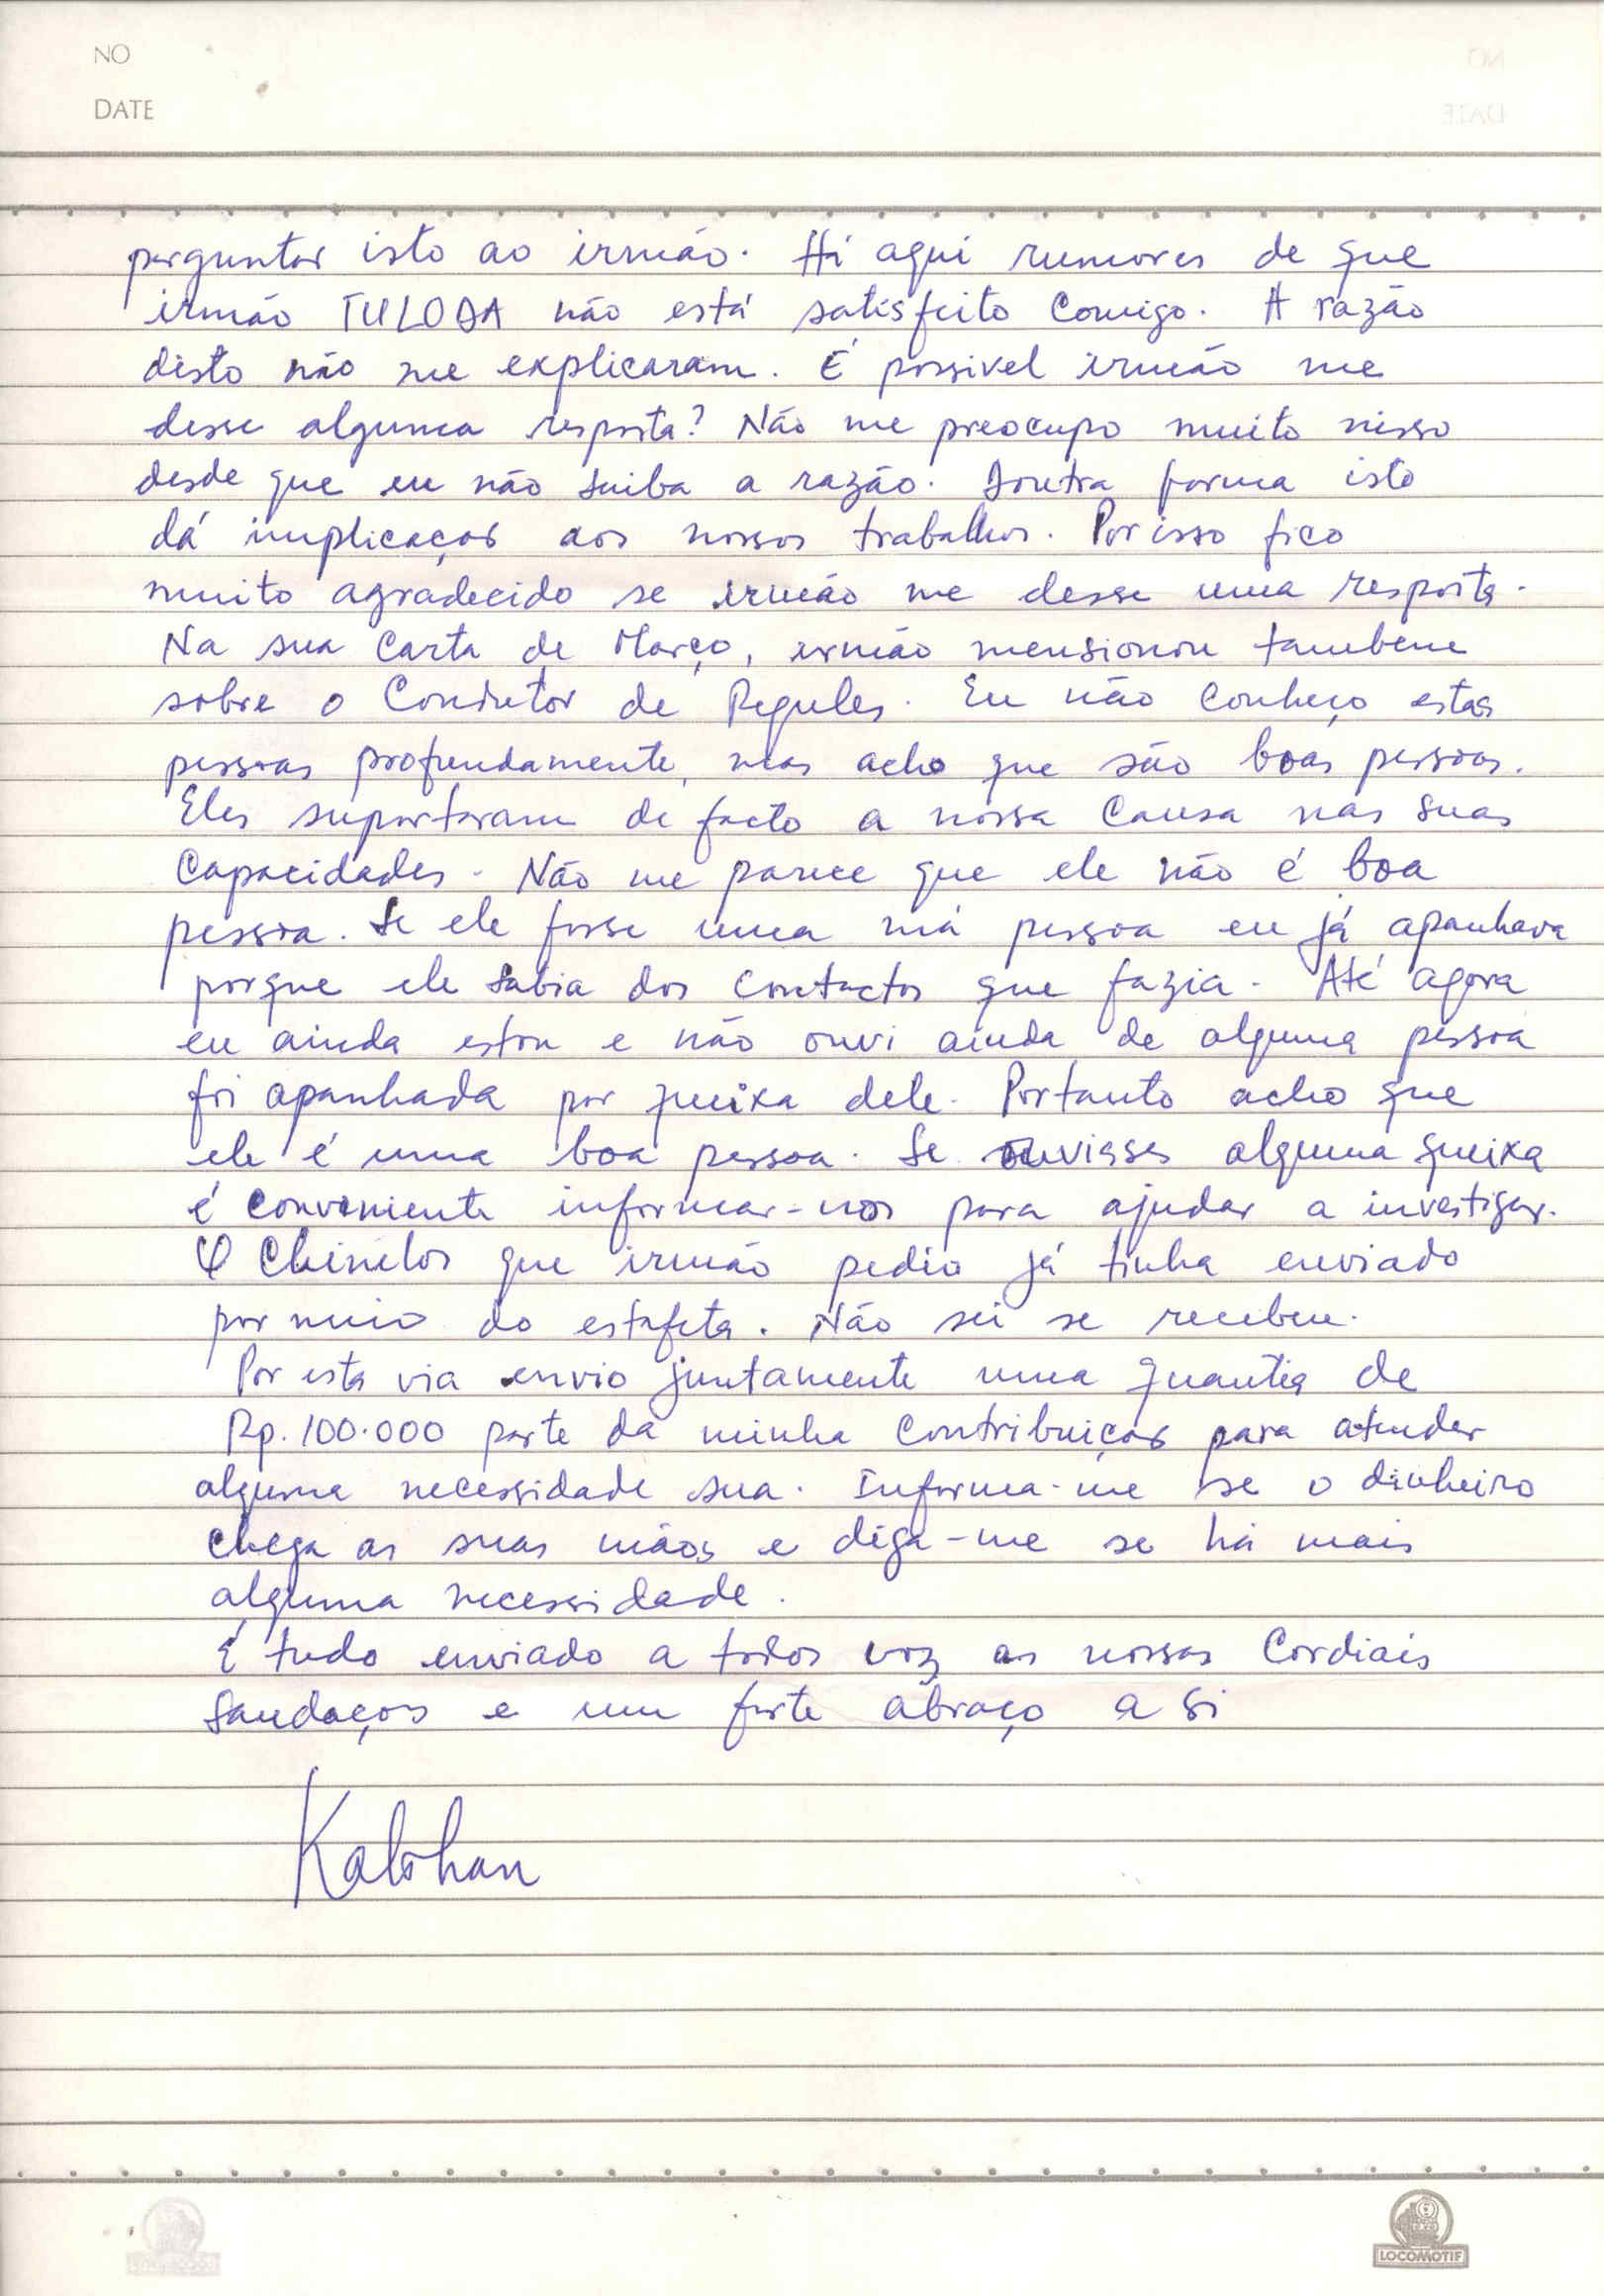 NO
DATE
perguntar isto ao irmão. Há aqui rumores de que
irmão TULODA não está satisfeito comigo. A razão
disto não me explicaram. É possivel irmão me
desse alguma resposta? Não me preocupo muito nisso
desde que eu não saiba a razão. Doutra forma isto
dá implicaçoes aos nossos trabalhos. Por isso fico
muito agradecido se irmão me desse uma resposta.
Na sua Carta de Março, irmão mensionou tambem
sobre o Condutor de Regules. Eu não conheço estas
pessoas profundamente, mas acho que são boas pessoas.
Eles suportaram de facto a nossa Causa nas suas
Capacidades. Não me parece que ele não é boa
pessoa. Se ele fosse uma má pessoa eu já apanhava
porque ele sabia dos contactos que fazia. Até agora
eu ainda estou e não ouvi ainda de alguma pessoa
foi apanhada por queixa dele. Portanto acho que
ele é uma boa pessoa. Se ouvisses alguma queixa
é conveniente informar-nos para ajudar a investigar.
O Chinelos que irmão pedio já tinha enviado
por meio do estafeta. Não sei se recebeu.
Por esta via envio juntamente uma quantia de
Rp. 100.000 parte da minha contribuiçao para atender
alguma necessidade sua. Informa-me se o dinheiro
chega as suas mãos e diga-me se há mais
alguma necessidade.
É tudo enviado a todos voz as nossas Cordiais
Saudaçoes e um forte abraço a si
Kalohan
LOCOMOTIF